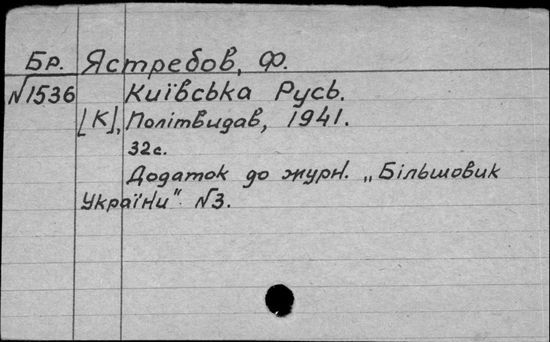 Бр. Ястребов, Ф.
№1536 Київська Русь.
[К], Політвидав, 1941.
32 с.
Додаток до журн. „Більшовик
України" №3.